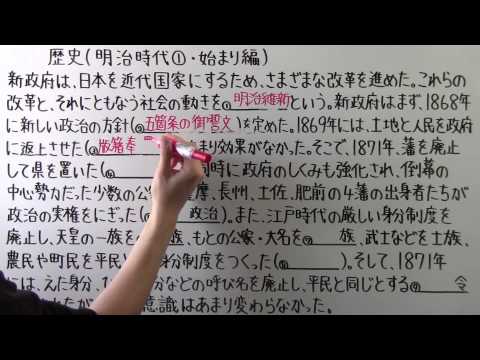 歴史(明治時代①・始まり編)
新政府は、日本を近代国家にするため、さまざまな改革を進めた。これらの
改革と、それにともなう社会の動きを(①明治維新)という。新政府はまず、1868年
に新しい政治の方針(②五箇条の御誓文)を定めた。1869年には、土地と人民を政府
に返上させた(③版籍奉 まり効果がなかった。そこで、1871年、藩を廃止
して県を置いた(④ 同時に政府のしくみも強化され、倒幕の
中心勢力だった少数の公 摩、長州、土佐、肥前の4藩の出身者たちが
政治の実権をにぎった( 政治)。また、江戸時代の厳しい身分制度を
廃止し、天皇の一族を 族、もとの公家・大名を 族、武士などを士族、
農民や町民を平民と 身分制度をつくった( )。そして、1871年
には、えた身分、ひ 分などの呼び名を廃止し、平民と同じとする 令
たが 意識はあまり変わらなかった。